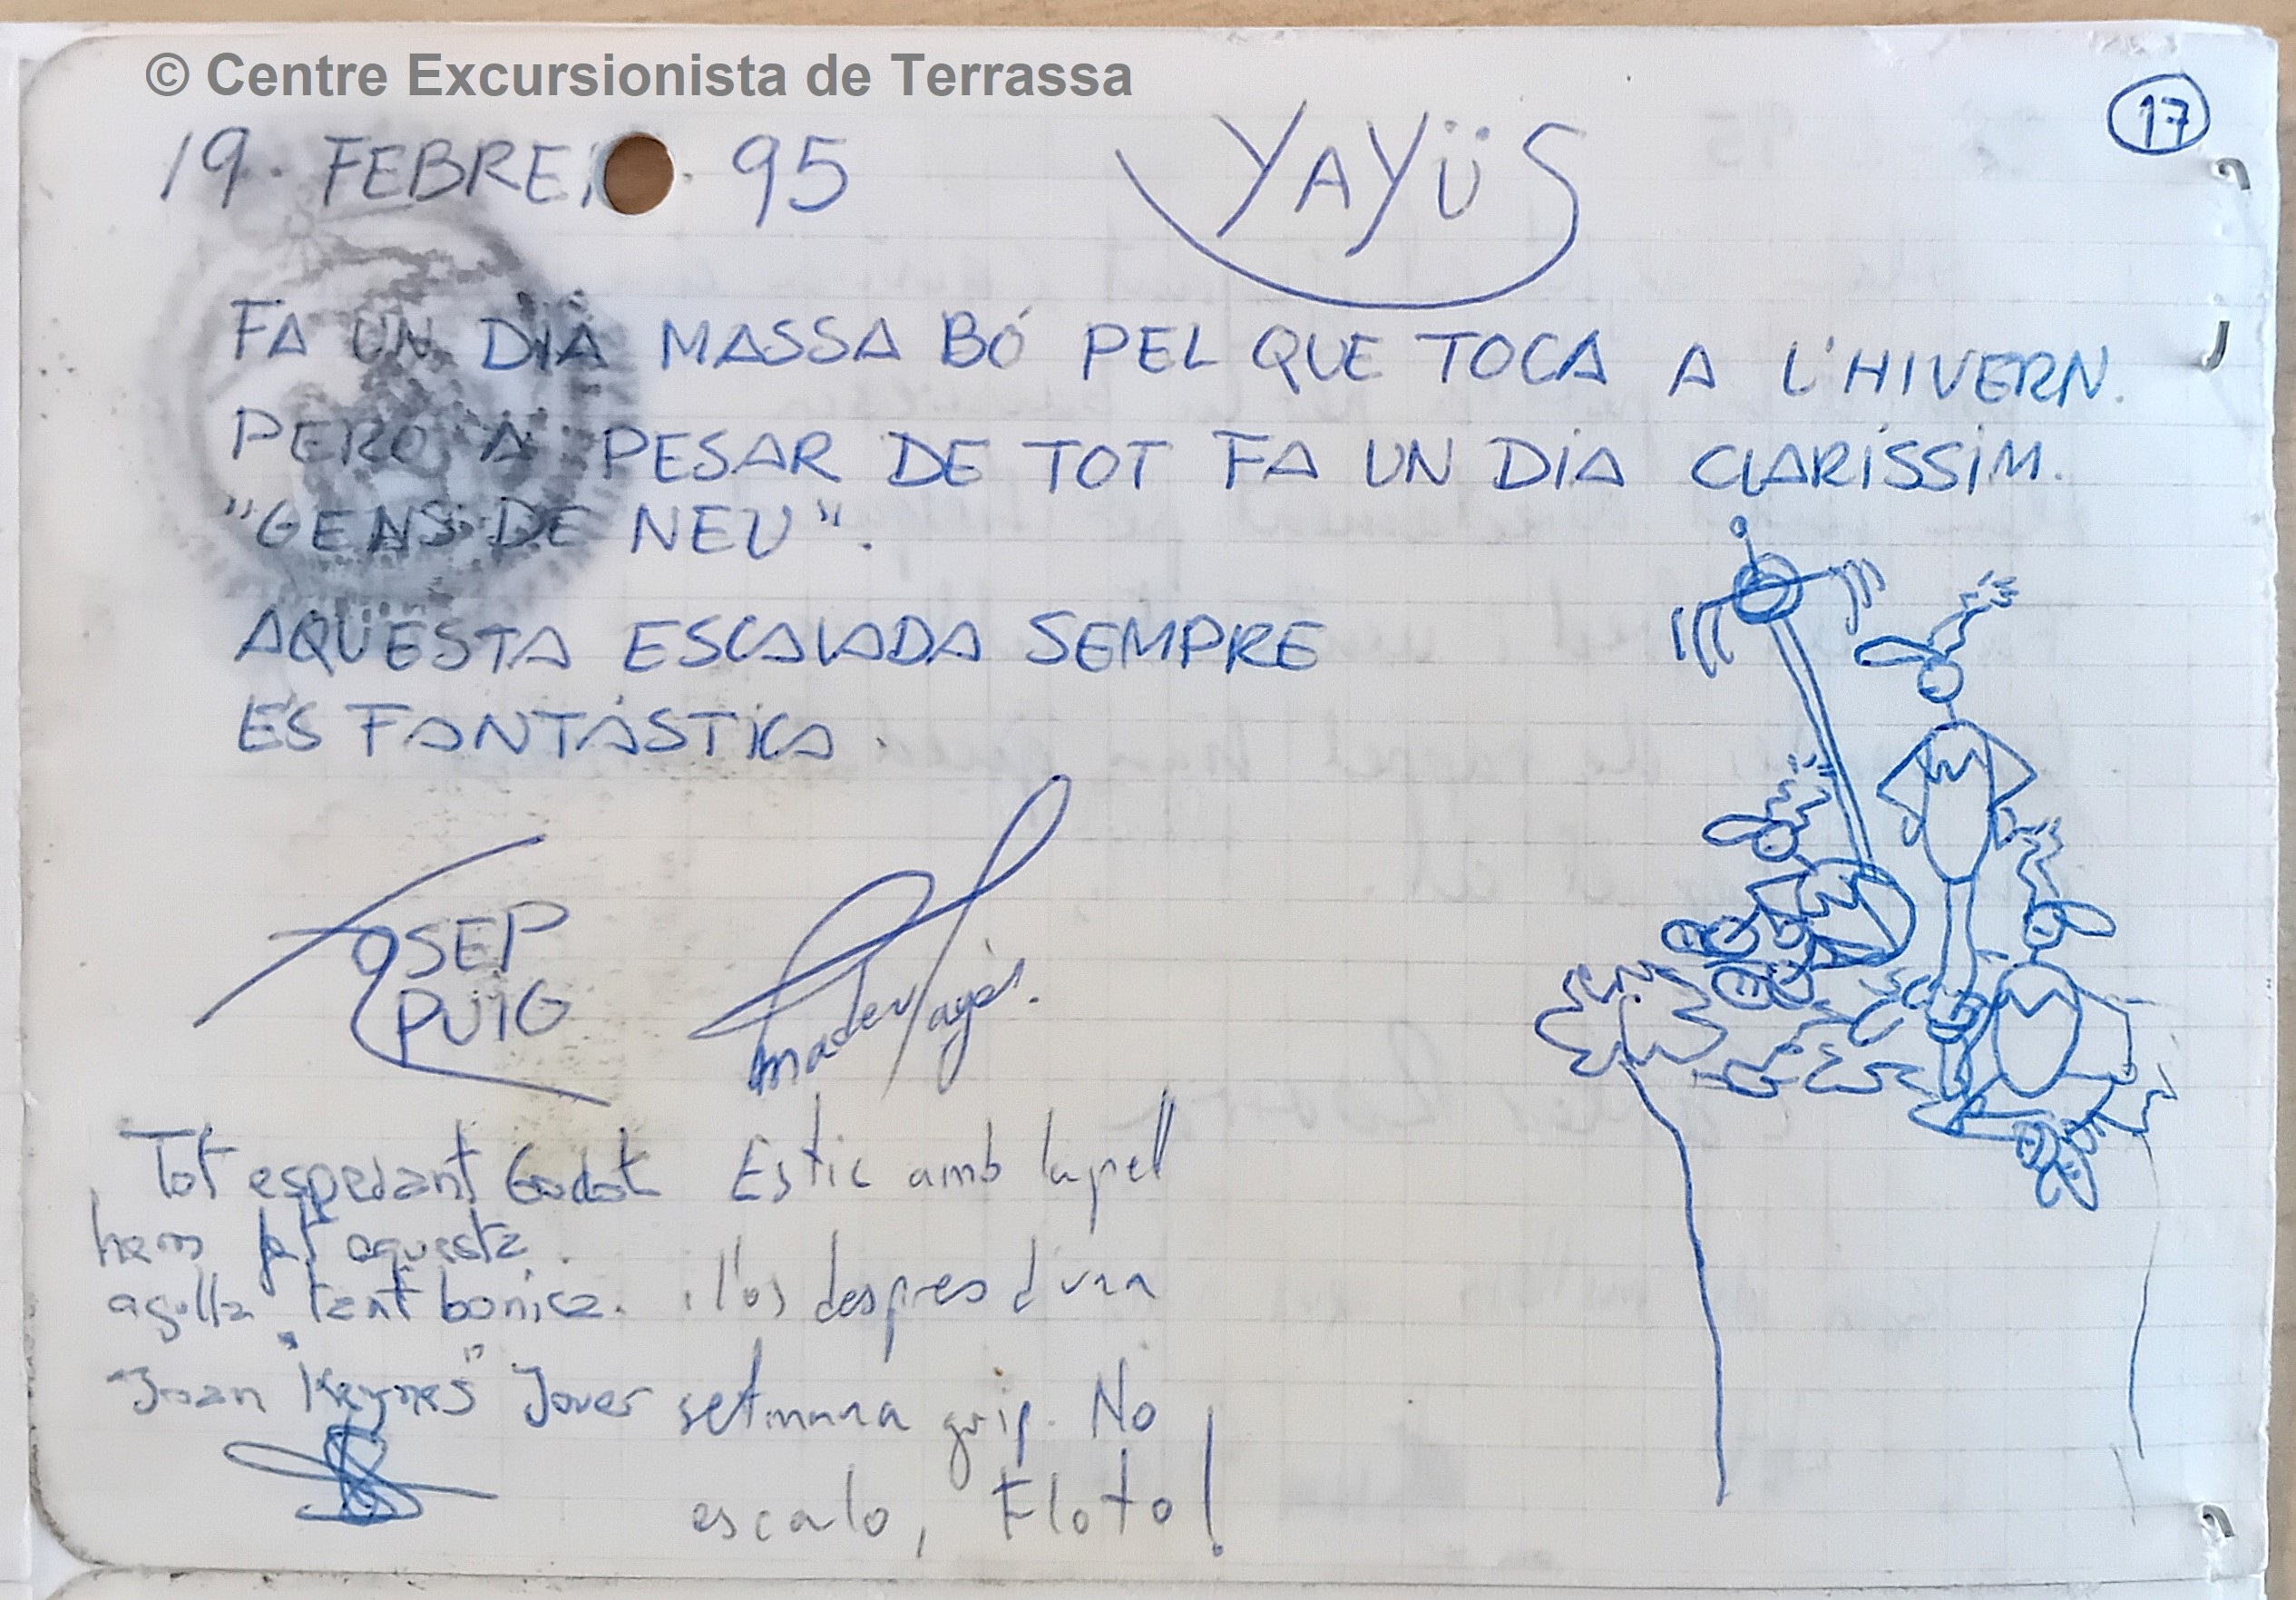 © Centre Excursionista de Terrassa
17
19. FEBRER. 95
YAYÜS
FA UN DIA MASSA BÓ PEL QUE TOCA A L'HIVERN.
PERO A PESAR DE TOT FA UN DIA CLARISSIM.
"GENS DE NEU".
AQUESTA ESCALADA SEMPRE
ES FANTÁSTICA.
JOSEP
PUIG
Tot esperant Godot
hem fet aquesta
agulla tant bonica.
Joan "Keynes" Jover
Estic amb la pell
i l'os despres d'una
setmana grip. No
escalo, Floto!